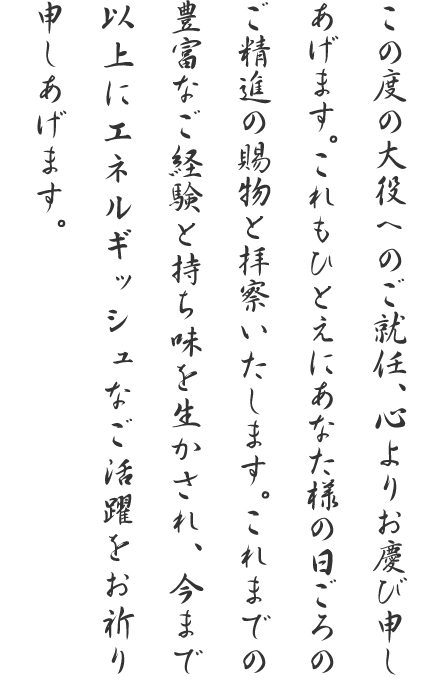 この度の大役へのご就任、心よりお慶び申し
あげます。これもひとえにあなた様の日ごろの
ご精進の賜物と拝察いたします。これまでの
豊富なご経験と持ち味を生かされ、今まで
以上にエネルギッシュなご活躍をお祈り
申しあげます。